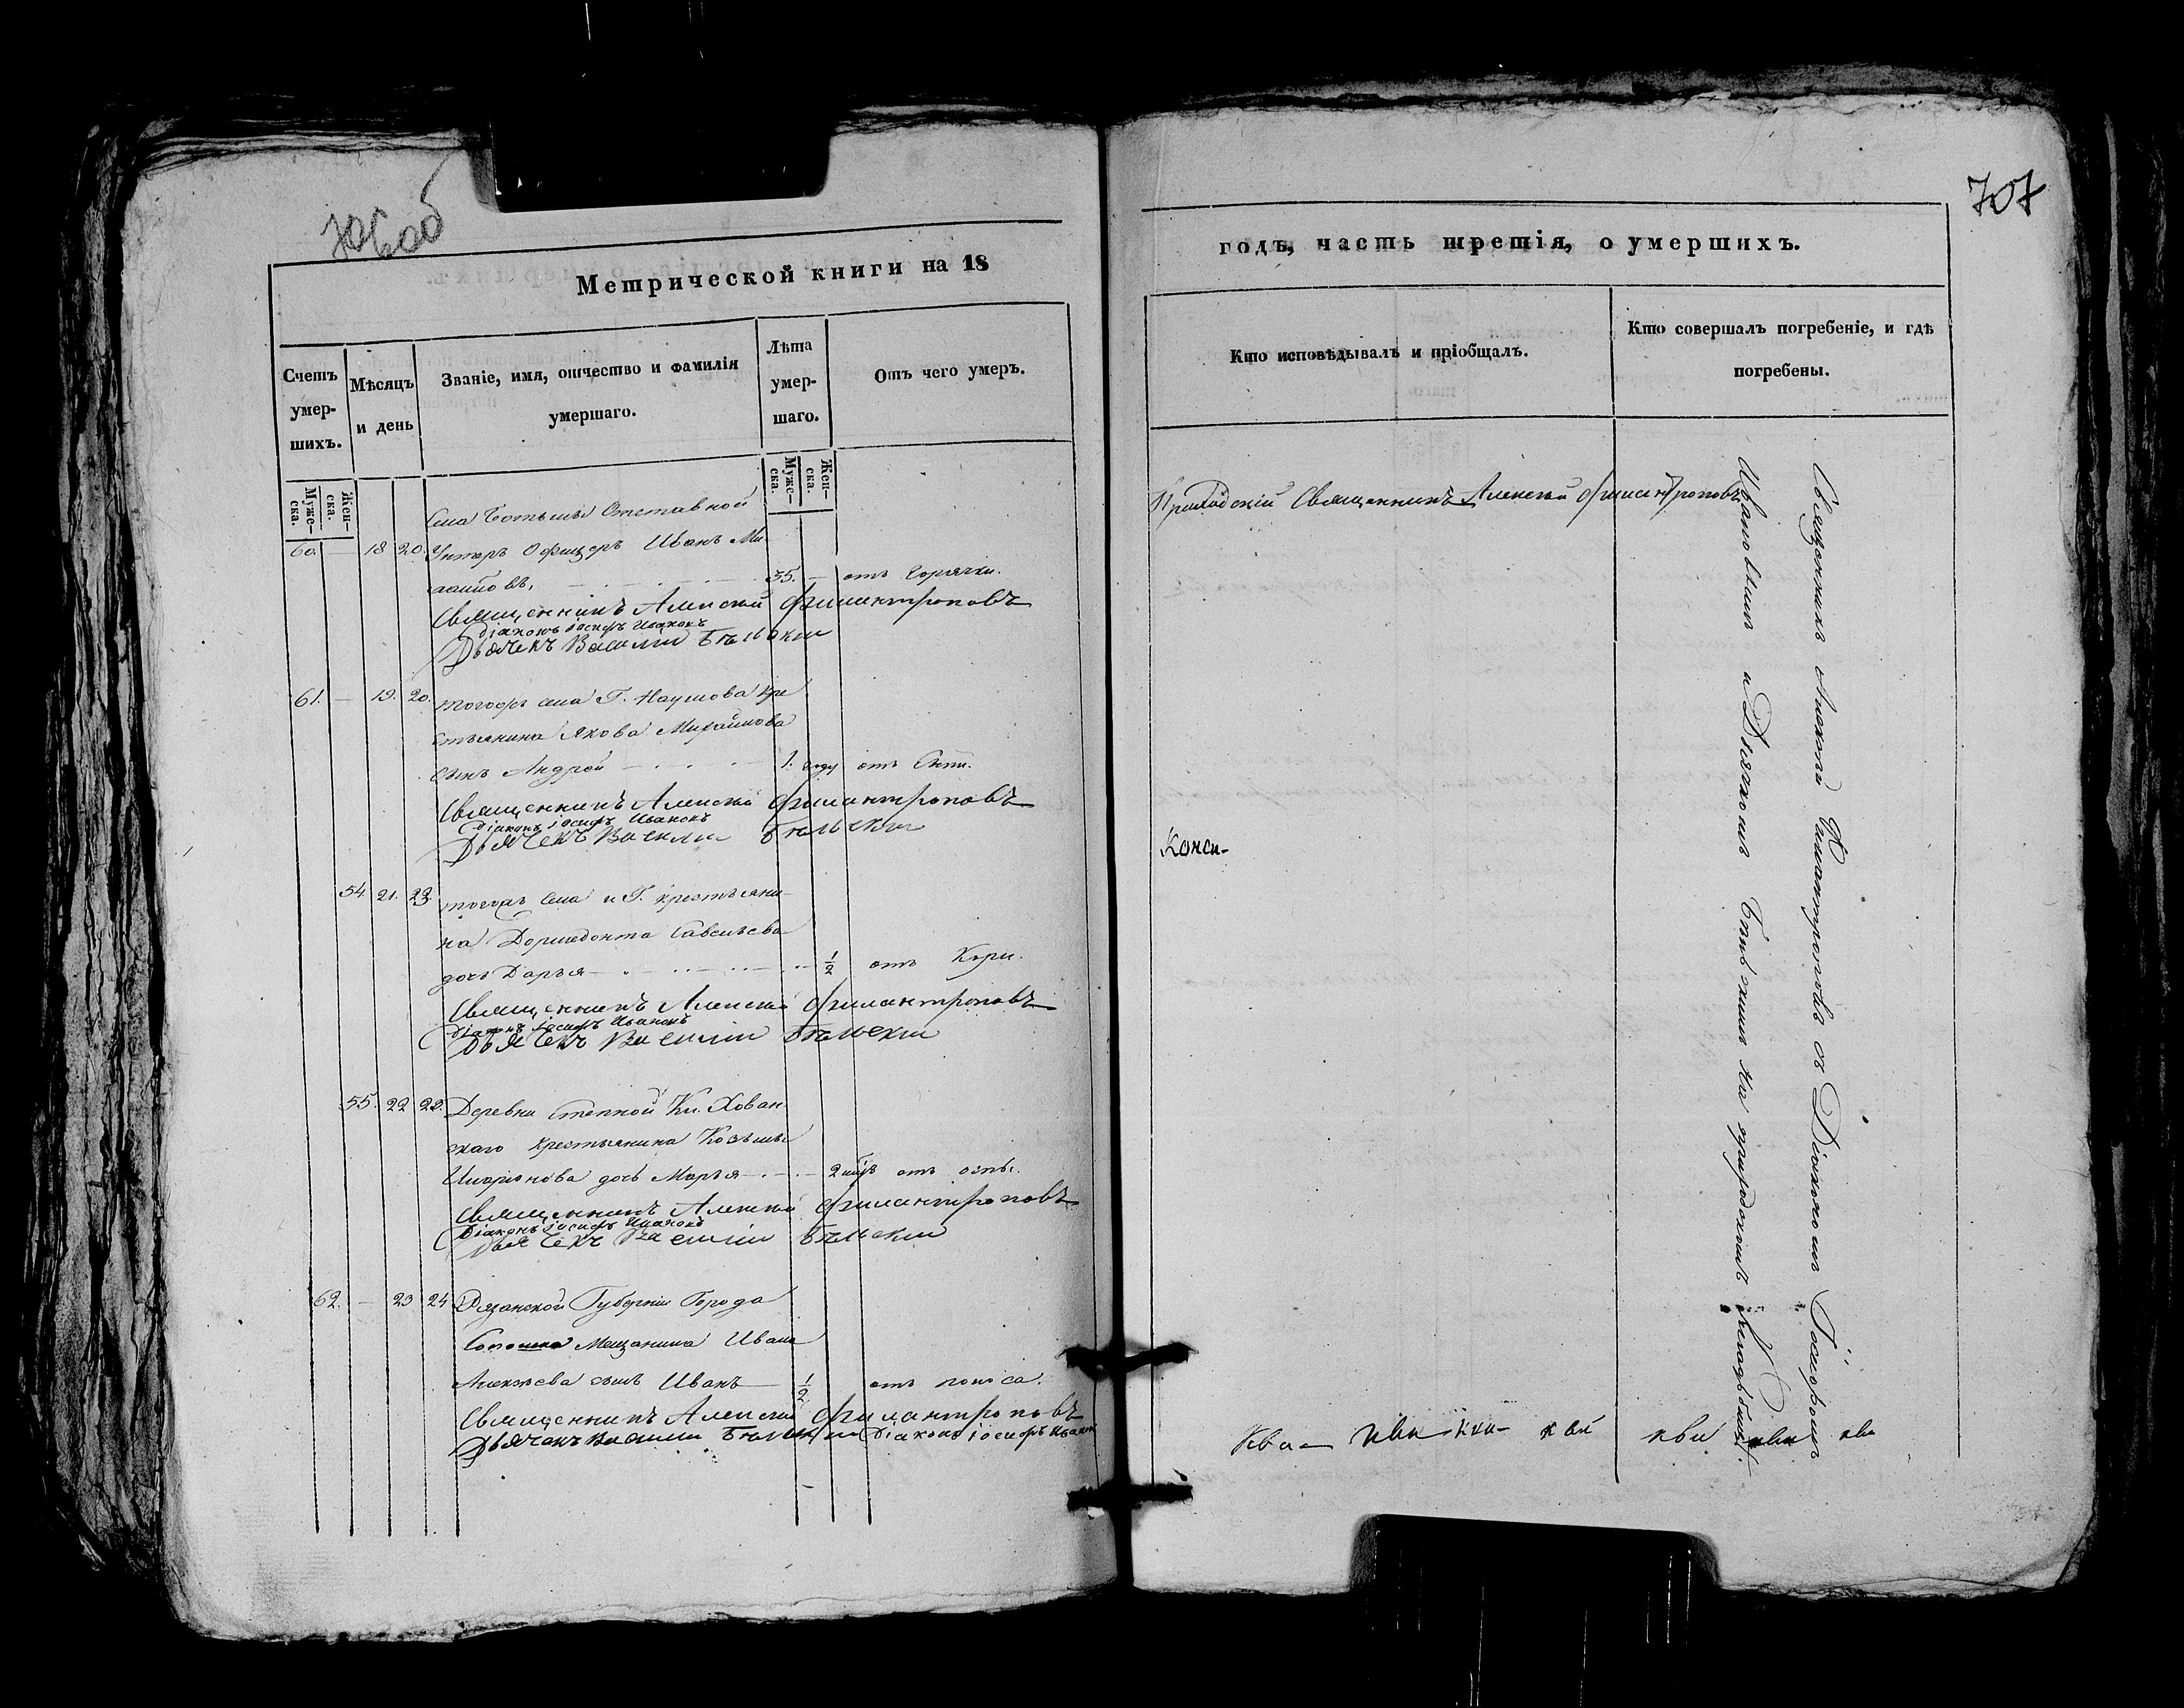 706 об
Метрической книги на 18
Счетъ умер-шихъ.
Мѣсяцъ и день
Званіе, имя, отчество и фамилія умершаго.
Лѣта умер-шаго.
Отъ чего умеръ.
Муже-ска.
Жен-ска.
Муже-ска.
Жен-ска.
Села Ботьмы Отставной
60. — 18 20. Унтеръ Офицеръ Иванъ Ми
35. — отъ горячки.
Священникъ Алексей Филантроповъ
Діаконъ Іосифъ Ивановъ
Дьячекъ Василий Бельскии
61. — 19. 20. тогожъ села Г. Наумова кре
стьянина Якова Михайлова
сынъ Андрей 1. году отъ Оспы.
Священникъ Алексей Филантроповъ
Діаконъ Іосифъ Ивановъ
Дьячекъ Василии Бельскии
54 21. 23. тогожъ села и Г. крестьяни-
на Доримедонта Савельева
дочь Дарья ½ отъ Кори.
Священникъ Алексей Филантроповъ
Діаконъ Іосифъ Ивановъ
Дьячекъ Василіи Бельскии
55. 22 22. Деревни Степной Кн. Хован
скаго крестьянина Козьмы
Иларіонова дочь Марья 2 отъ оспы.
Священникъ Алексей Филантроповъ
Діаконъ Іосифъ Ивановъ
Дьячекъ Василіи Бельскии
62. — 23 24 Рязанской Губерніи Города
Мещанина Ивана
Алексѣева сынъ Иванъ ½ отъ поноса.
Священникъ Алексей Филантроповъ
Дьячекъ Василии Бельскии Діаконъ Іосифъ Ивановъ
707
годъ, часть третія, о умершихъ.
Кто исповѣдывалъ и пріобщалъ.
Кто совершалъ погребеніе, и гдѣ погребены.
Приходскій Священникъ Алексѣй Филантроповъ
Священникъ Алексѣй Филантроповъ съ Діакономъ Іосифомъ
Ивановымъ и Дьячкомъ Бельскимъ на приходскомъ кладбищѣ.